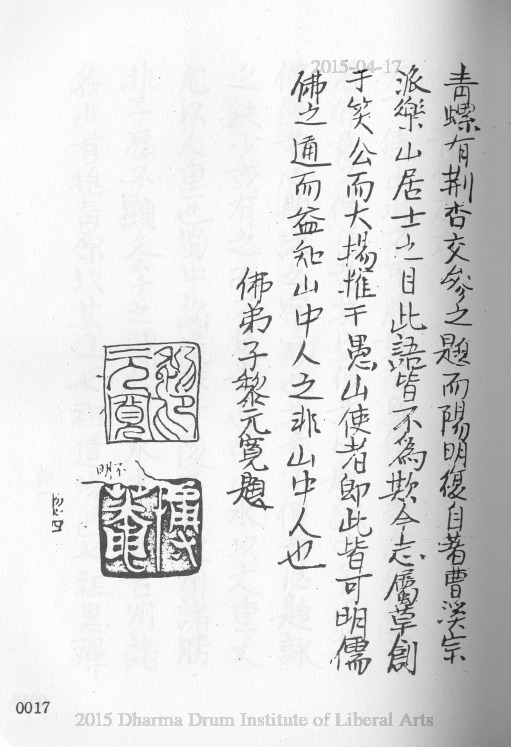 2015-04-17
青螺有荆杏交參之題而陽明復自著曹溪宗
派樂山居士之目此語皆不為欺今志屬草創
于笑公而大揚搉于愚山使者即此皆可明儒
佛之通而益知山中人之非山中人也
佛弟子黎元寬題
黎印
元寬
博菴
不明
0017
2015 Dharma Drum Institute of Liberal Arts